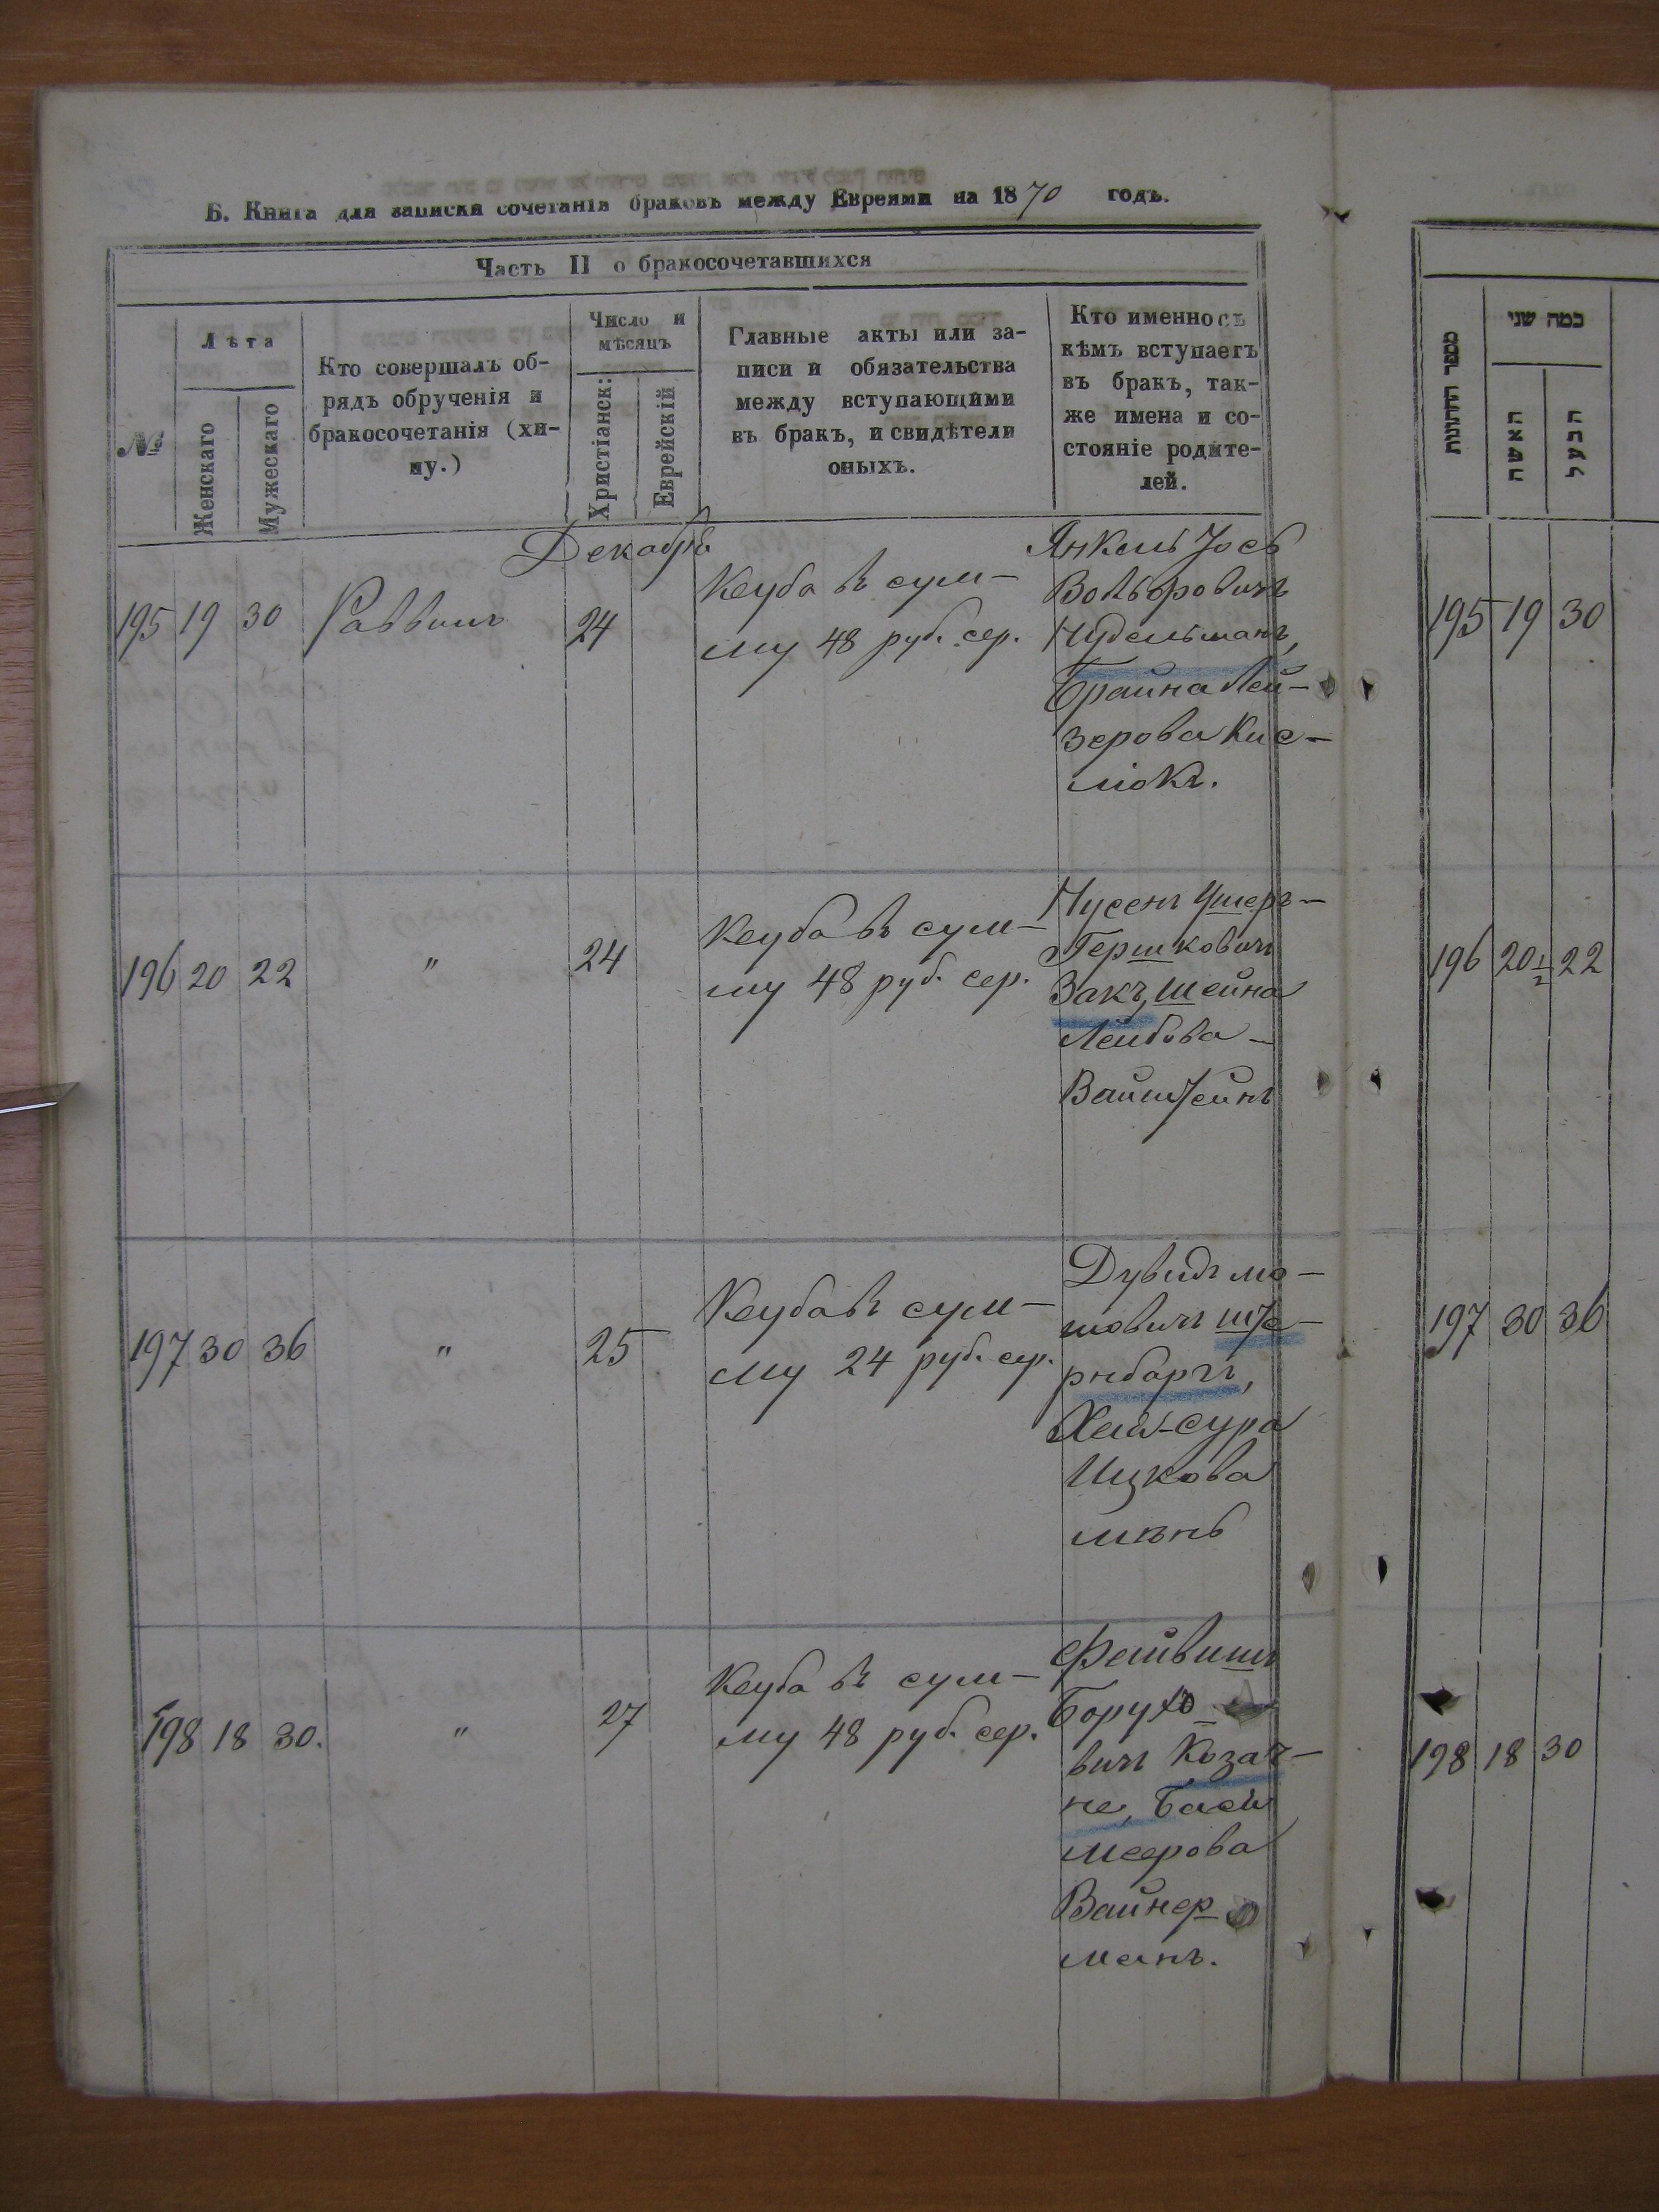 Б. Книга для записки сочетанія браковъ между Евреями на 1870 годъ.
Часть II о бракосочетавшихся
№
Лѣта
Женскаго
Мужескаго
Кто совершалъ об-
рядъ обрученія и
бракосочетанія (хи-
пу.)
Число и
мѣсяцъ
Христіанск:
Еврейскій
Главные акты или за-
писи и обязательства
между вступающими
въ бракъ, и свидѣтели
оныхъ.
Кто именно съ
кѣмъ вступаетъ
въ бракъ, так-
же имена и со-
стояніе родите-
лей.
מספר החתונות
כמה שני
האשה
הבעל
Декабрь
195 19 30 Раввинъ 24
Кеуба въ сум-
му 48 руб. сер.
Янкель Іось
Вольфовичъ
Нудельманъ,
Брайна Лей-
зерова Кис-
люкъ.
195 19 30
196 20 22 " 24
Кеуба въ сум-
му 48 руб. сер.
Нусенъ Ушеръ-
Гершковичъ
Закъ, Шейна
Лейбова
Вайнштейнъ
196 20½ 22
197 30 36 " 25
Кеуба въ сум-
му 24 руб. сер.
Дувидъ Мо-
шовичъ Ште-
рнбаргъ,
Хая-Сура
Ицкова
197 30 36
198 18 30. " 27
Кеуба въ сум-
му 48 руб. сер.
Файвишъ
Борухо-
вичъ Козач-
не, Бася
Меерова
Вайнер-
манъ.
198 18 30